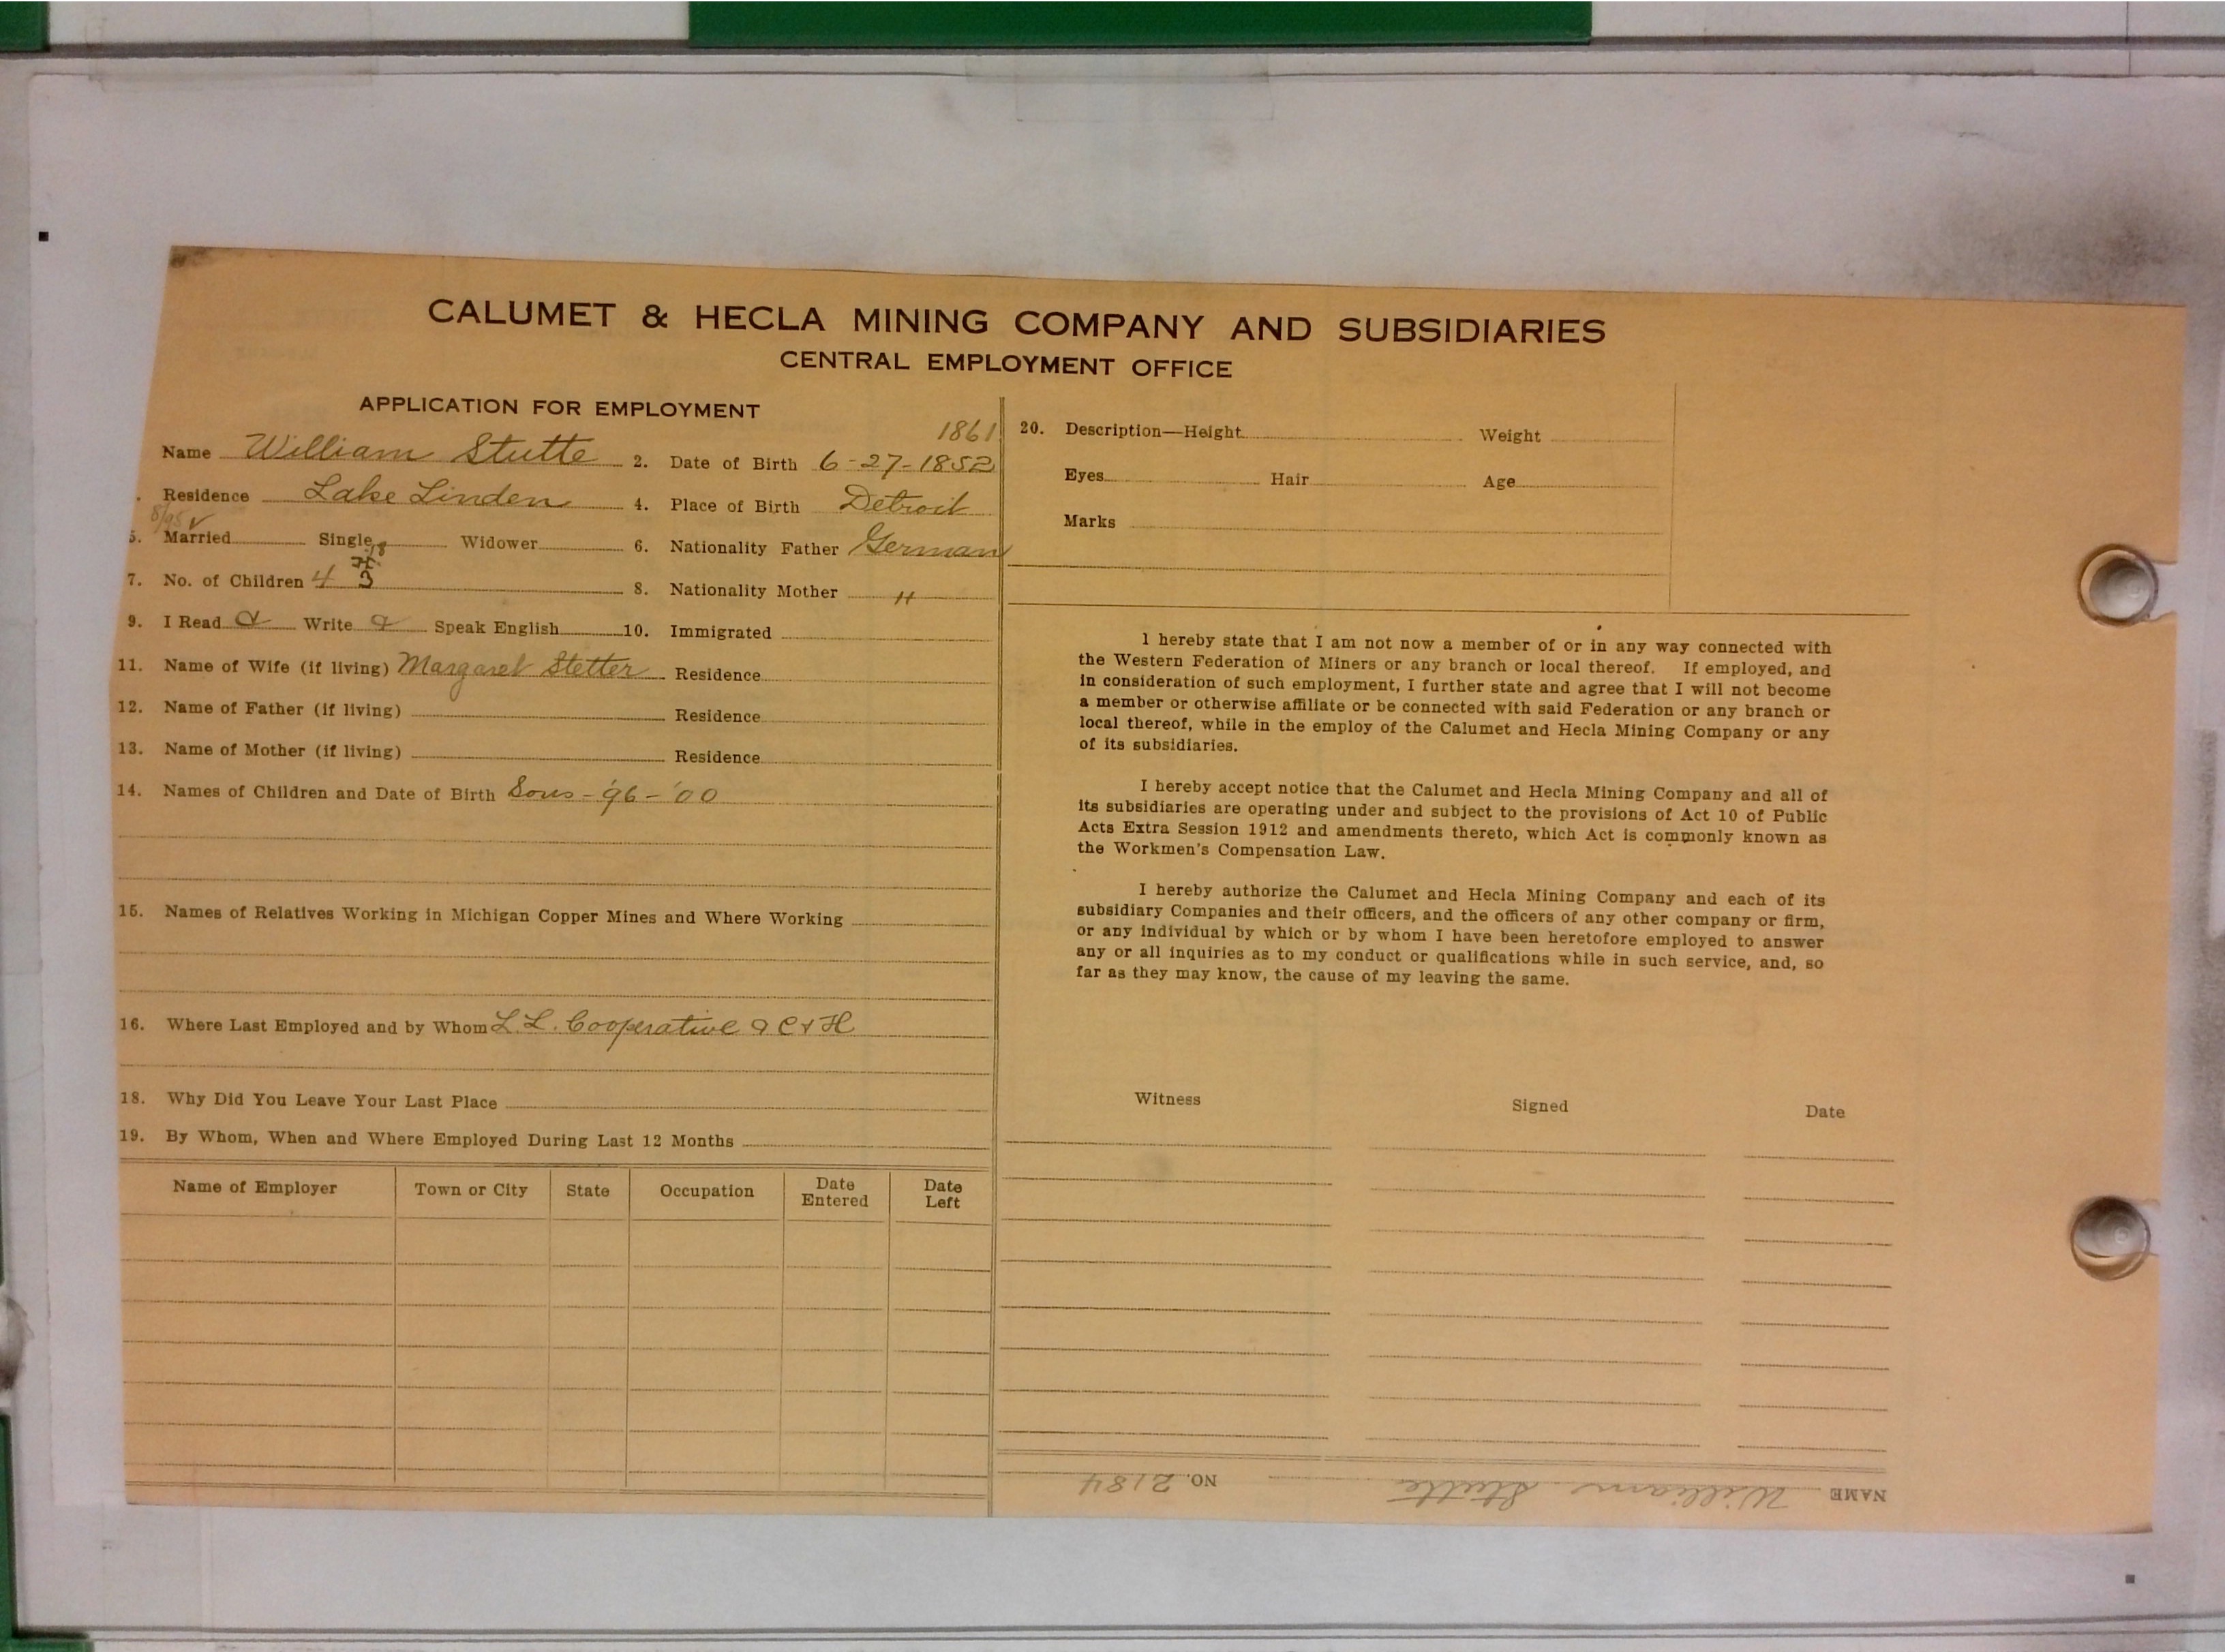 CALUMET & HECLA MINING COMPANY AND SUBSIDIARIES
CENTRAL EMPLOYMENT OFFICE
APPLICATION FOR EMPLOYMENT
1861
Name William Stutte 2. Date of Birth 6-27-1852
Residence Lake Linden 4. Place of Birth Detroit
8/95 ✓
5. Married Single Widower 6. Nationality Father German
7. No. of Children 4 3 8. Nationality Mother "
9. I Read Write Speak English 10. Immigrated
11. Name of Wife (if living) Margaret Stetter Residence
12. Name of Father (if living) Residence
13. Name of Mother (if living) Residence
14. Names of Children and Date of Birth Sons - '96 - '00
15. Names of Relatives Working in Michigan Copper Mines and Where Working
16. Where Last Employed and by Whom L.L. Cooperative & C & H
18. Why Did You Leave Your Last Place
19. By Whom, When and Where Employed During Last 12 Months
Name of Employer Town or City State Occupation Date Entered Date Left
20. Description—Height Weight
Eyes Hair Age
Marks
I hereby state that I am not now a member of or in any way connected with
the Western Federation of Miners or any branch or local thereof. If employed, and
in consideration of such employment, I further state and agree that I will not become
a member or otherwise affiliate or be connected with said Federation or any branch or
local thereof, while in the employ of the Calumet and Hecla Mining Company or any
of its subsidiaries.
I hereby accept notice that the Calumet and Hecla Mining Company and all of
its subsidiaries are operating under and subject to the provisions of Act 10 of Public
Acts Extra Session 1912 and amendments thereto, which Act is commonly known as
the Workmen's Compensation Law.
I hereby authorize the Calumet and Hecla Mining Company and each of its
subsidiary Companies and their officers, and the officers of any other company or firm,
or any individual by which or by whom I have been heretofore employed to answer
any or all inquiries as to my conduct or qualifications while in such service, and, so
far as they may know, the cause of my leaving the same.
Witness Signed Date
NAME William Stutte NO. 2184